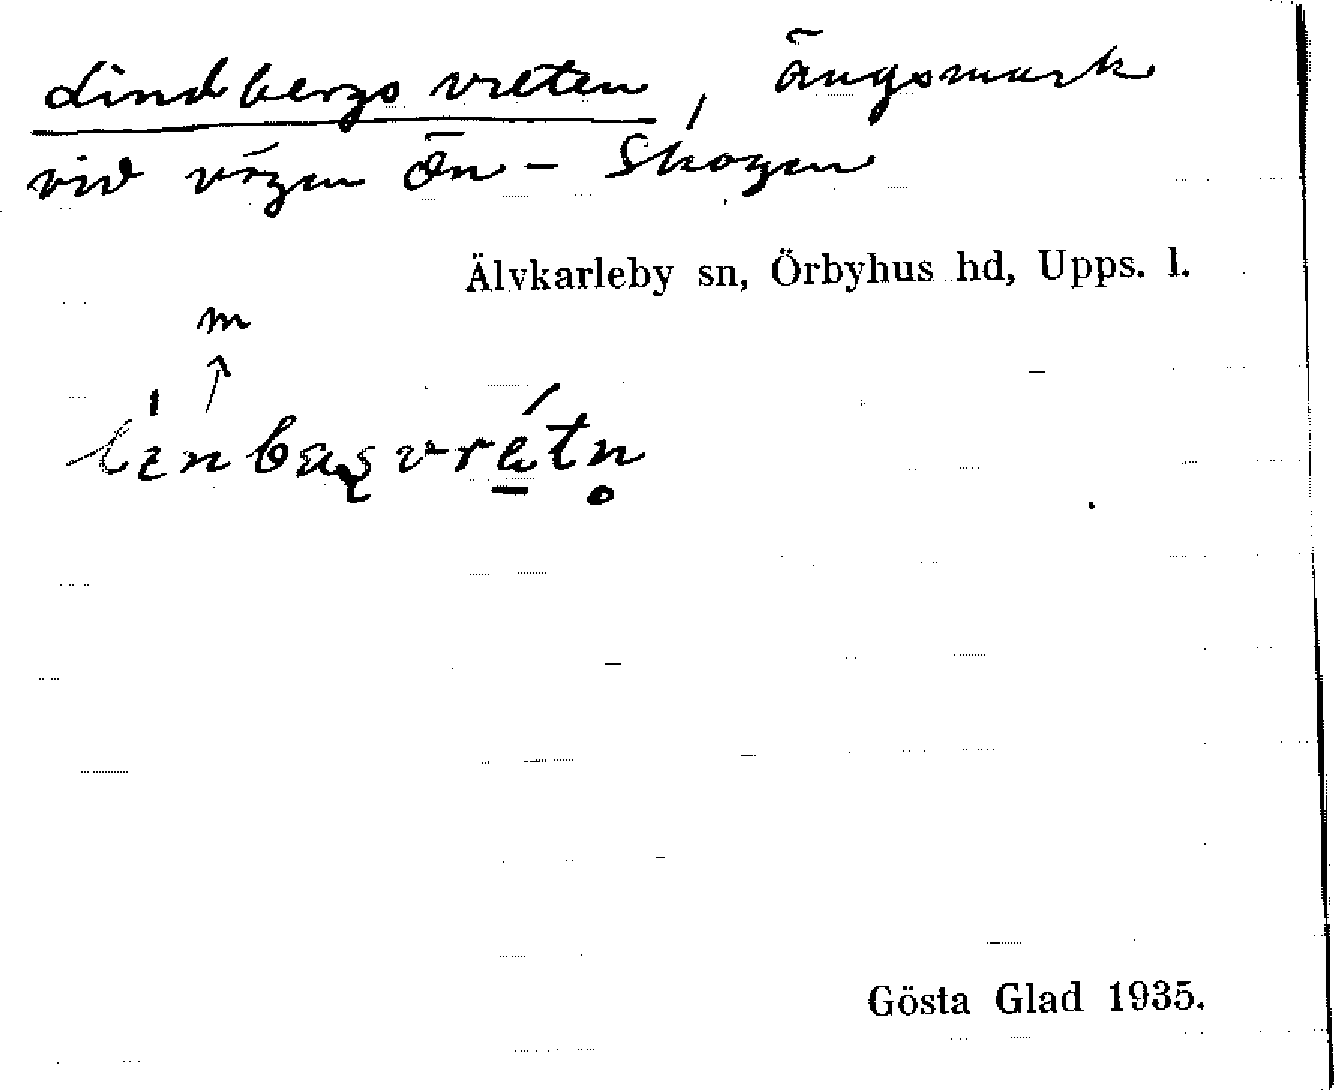 Lindbergs vreten, ängsmark
vid vägen Ön - Skogen
Älvkarleby sn, Örbyhus hd, Upps. l.
m
↑
Gösta Glad 1935.